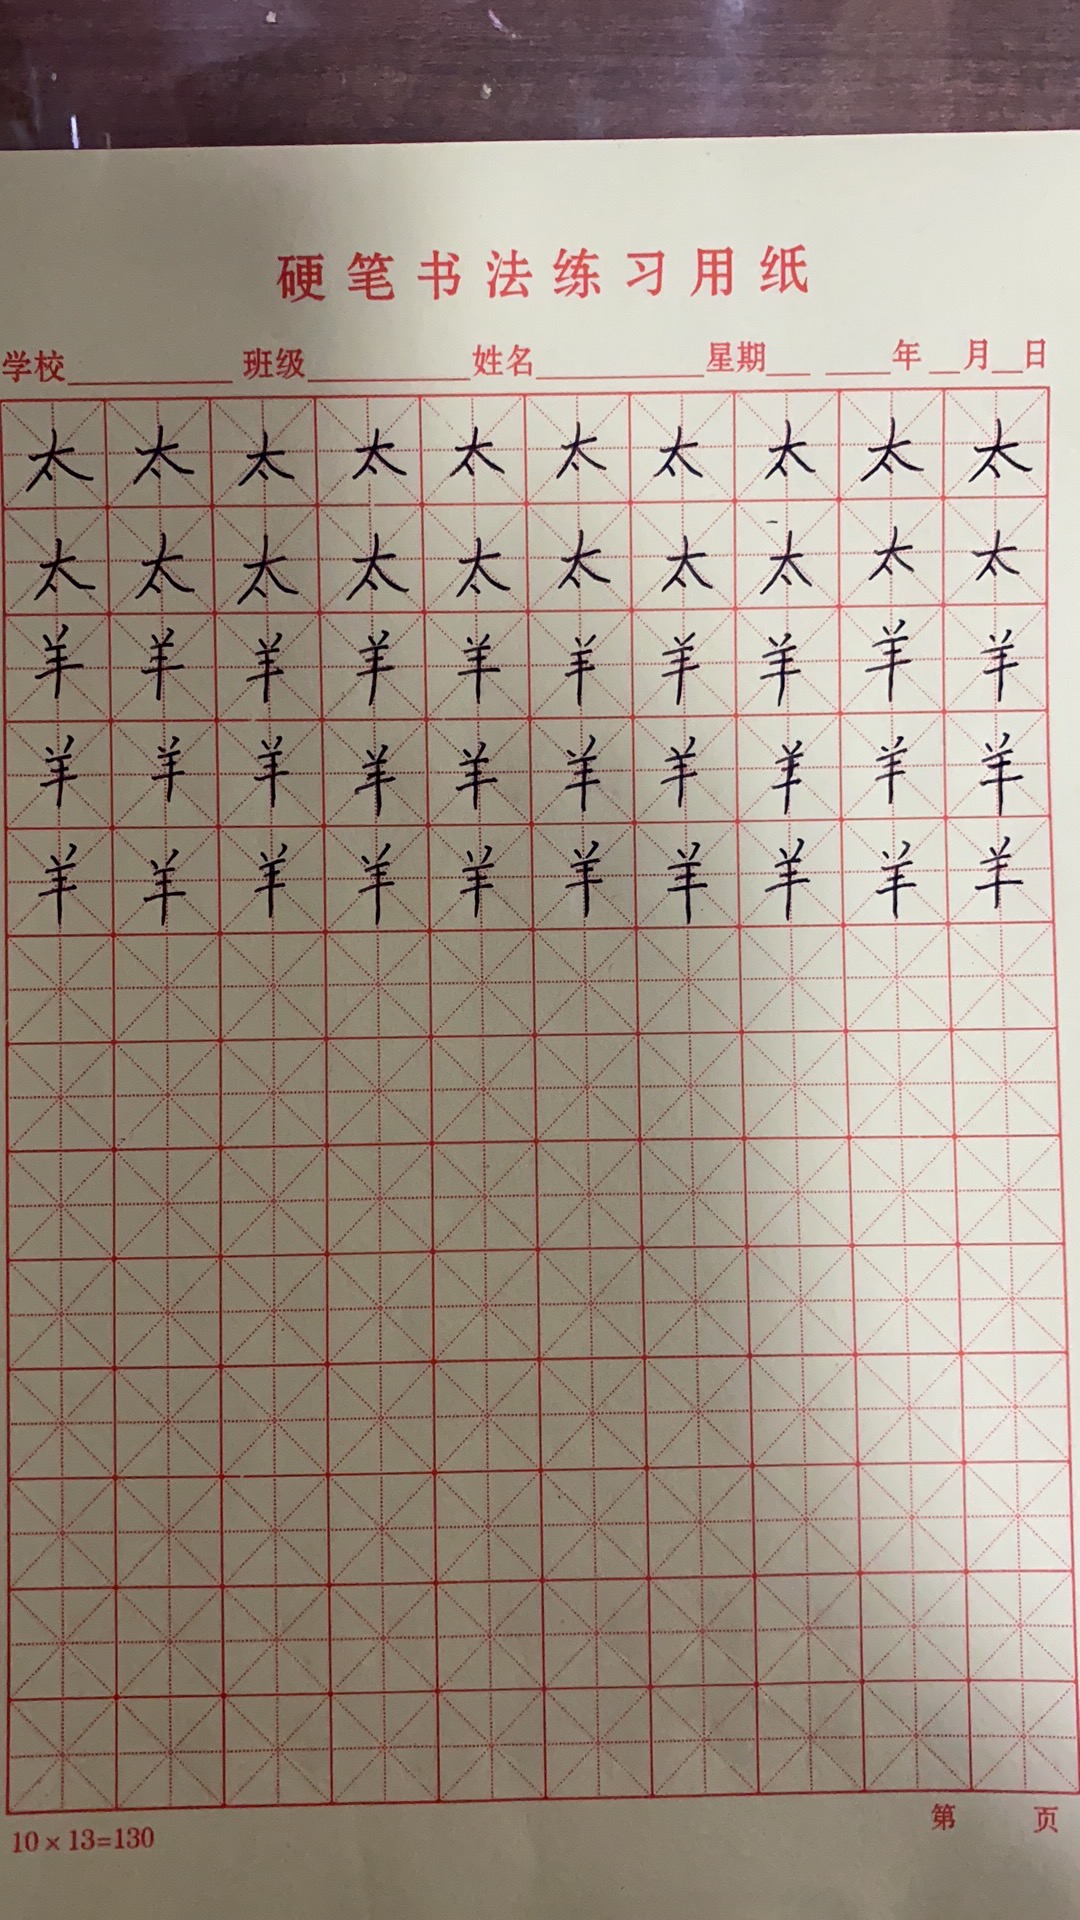 硬笔书法练习用纸
学校 班级 姓名 星期 年 月 日
太太太太太太太太太太
太太太太太太太太太太
羊羊羊羊羊羊羊羊羊羊
羊羊羊羊羊羊羊羊羊羊
羊羊羊羊羊羊羊羊羊羊
10×13=130 第 页